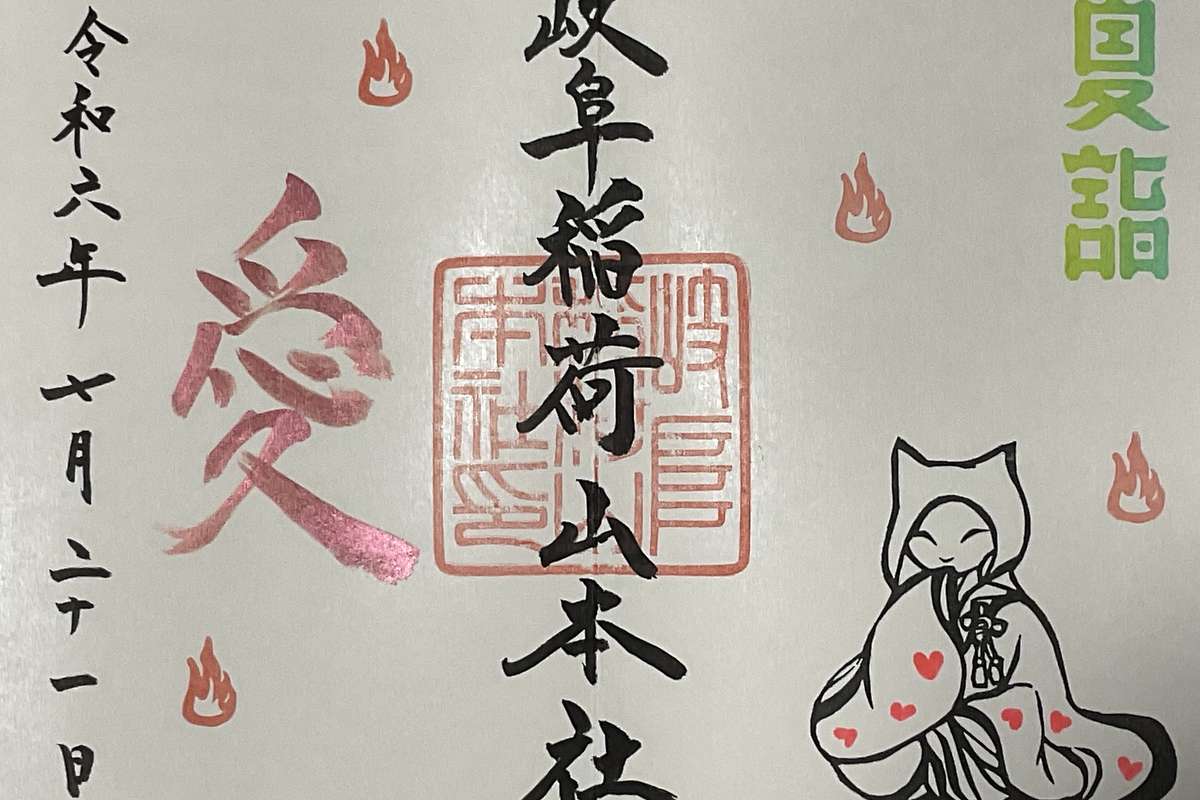 夏詣
岐阜稲荷山本社
岐阜
稲荷山
本社印
愛
令和六年七月二十一日